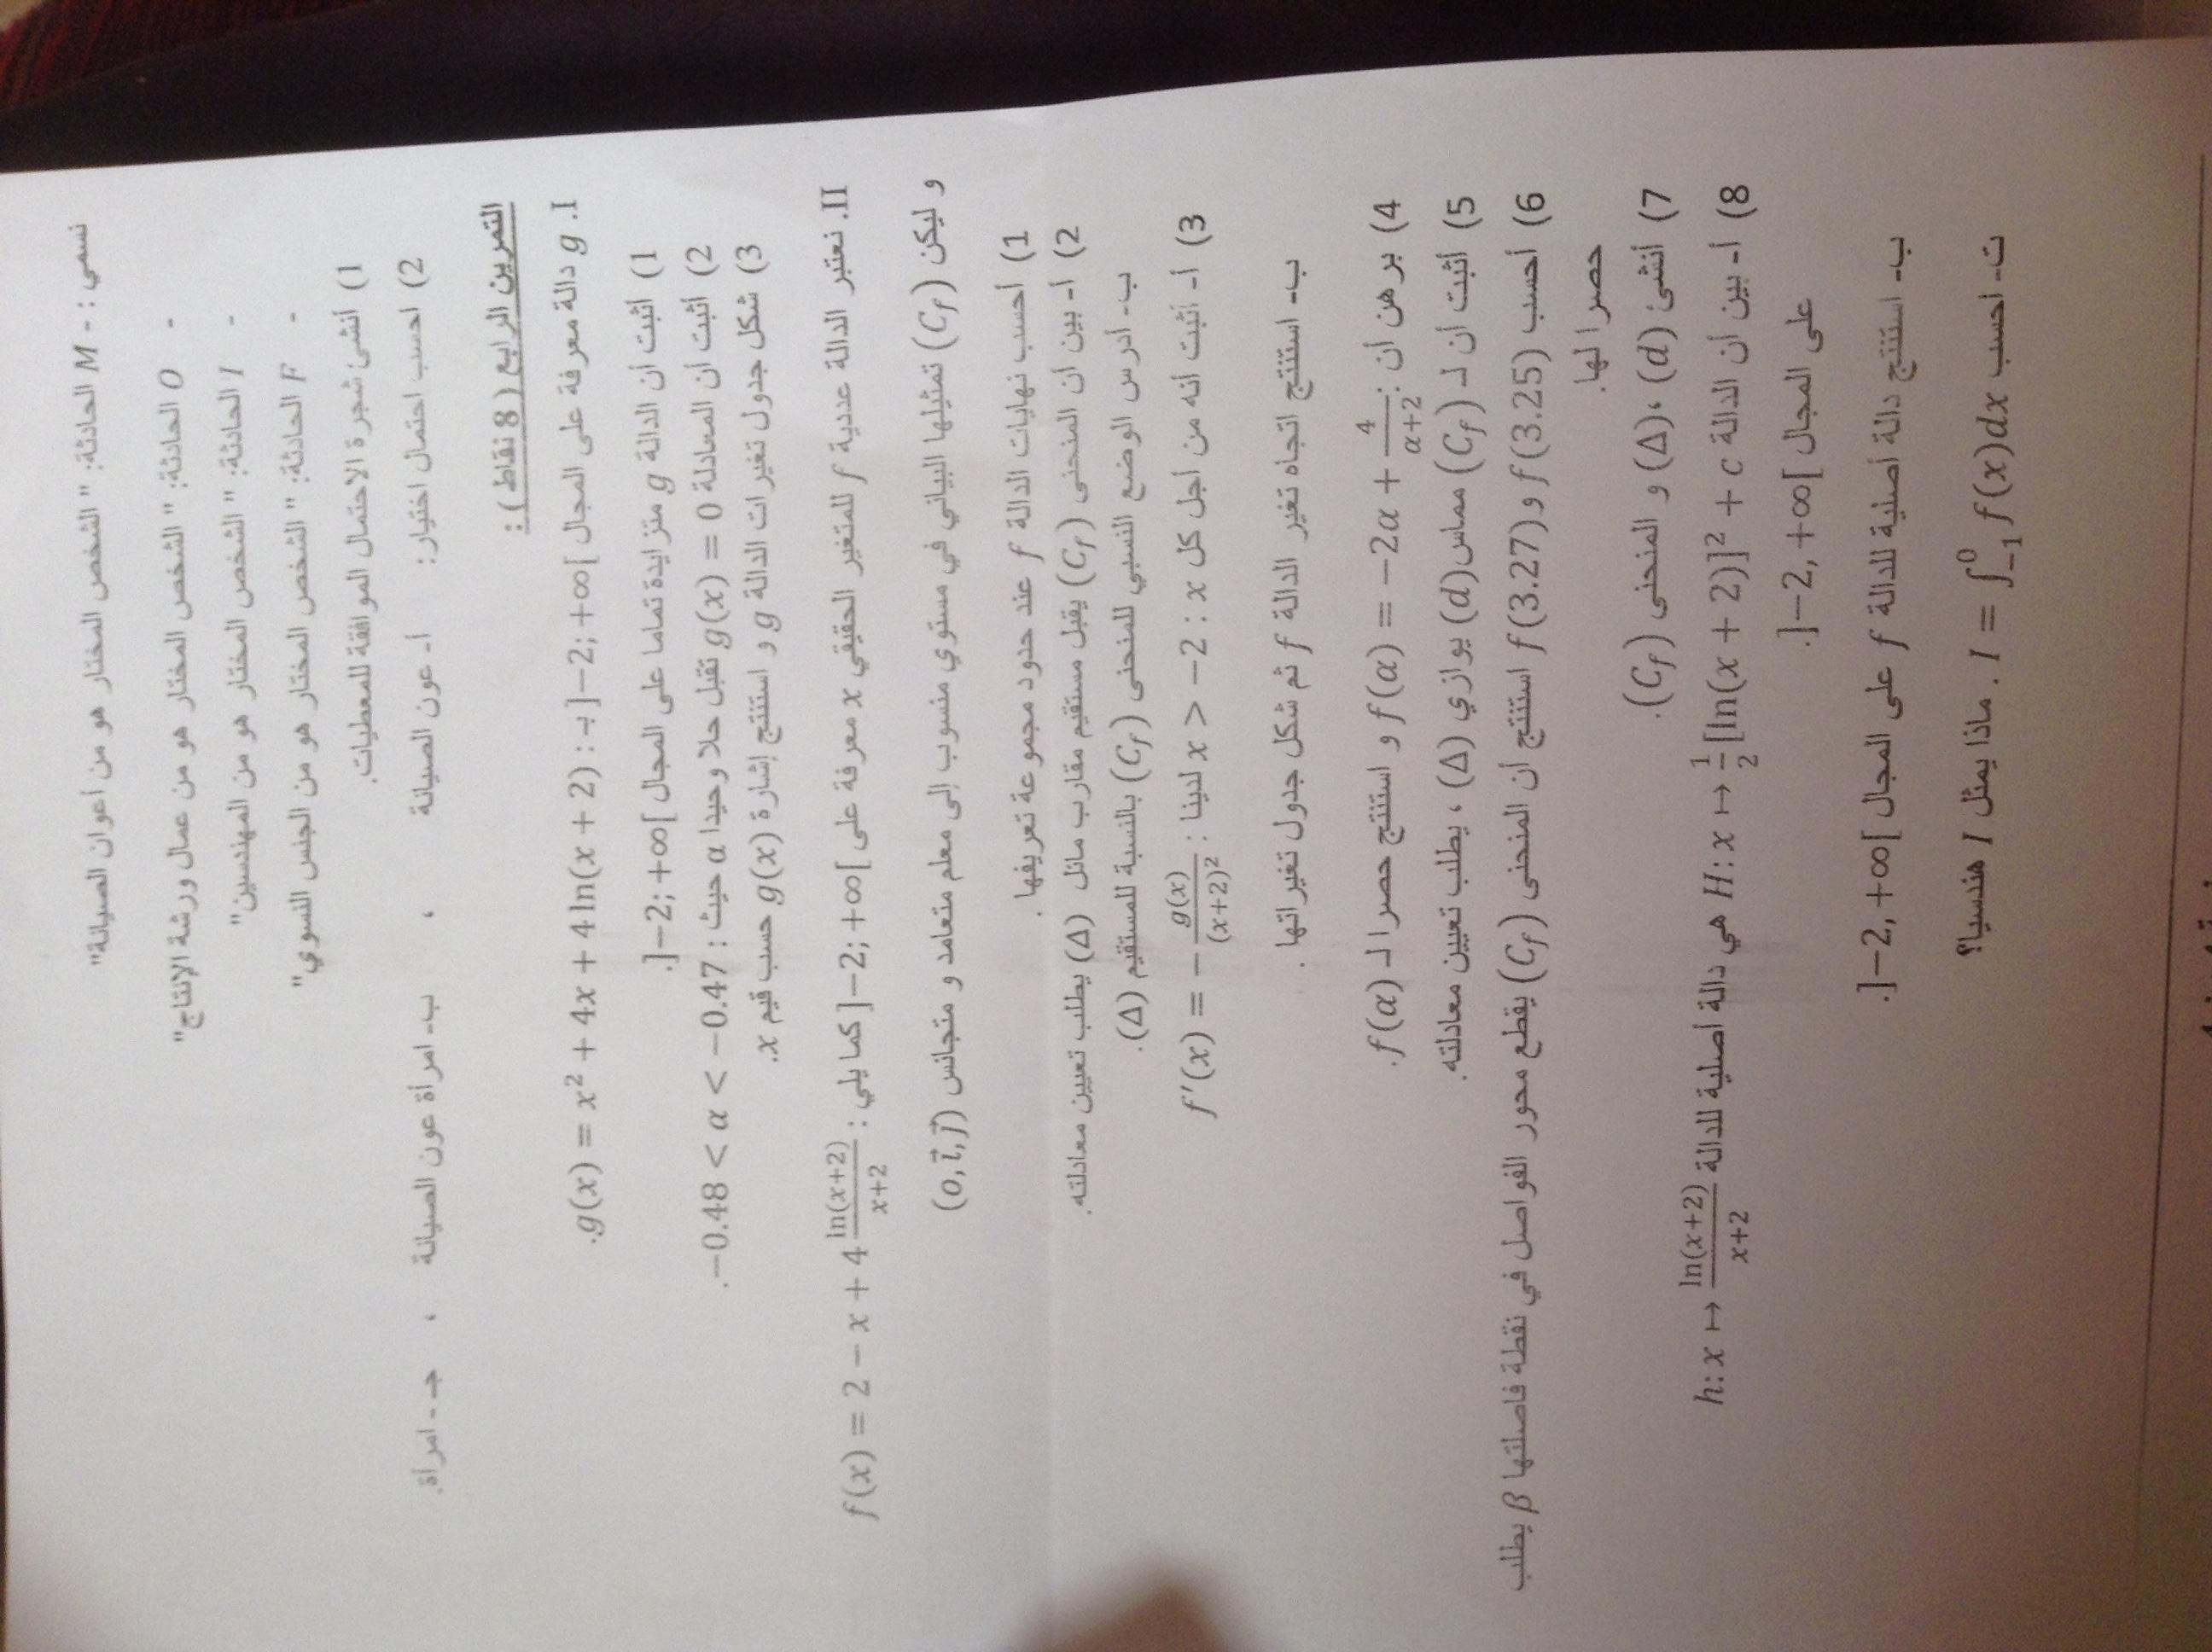 نسمي : - M الحادثة: " الشخص المختار هو من أعوان الصيانة"
- O الحادثة: " الشخص المختار هو من عمال ورشة الإنتاج"
- I الحادثة: " الشخص المختار هو من المهندسين"
- F الحادثة: " الشخص المختار هو من الجنس النسوي"
1) أنشئ شجرة الاحتمال الموافقة للمعطيات.
2) احسب احتمال اختيار: أ- عون الصيانة ، ب- امرأة عون الصيانة ، جـ- امرأة.
التمرين الرابع ( 8 نقاط) :
I. g دالة معرفة على المجال ]−2; +∞[ بـ : g(x) = x² + 4x + 4 ln(x + 2).
1) أثبت أن الدالة g متزايدة تماما على المجال ]−2; +∞[.
2) أثبت أن المعادلة g(x) = 0 تقبل حلا وحيدا α حيث : −0.48 < α < −0.47.
3) شكل جدول تغيرات الدالة g و استنتج إشارة g(x) حسب قيم x.
II. نعتبر الدالة عددية f للمتغير الحقيقي x معرفة على ]−2; +∞[ كما يلي : f(x) = 2 − x + 4 ln(x+2)/(x+2)
و ليكن (C_f) تمثيلها البياني في مستوي منسوب إلى معلم متعامد و متجانس (o, i⃗, j⃗)
1) أحسب نهايات الدالة f عند حدود مجموعة تعريفها .
2) أ- بين أن المنحنى (C_f) يقبل مستقيم مقارب مائل (Δ) يطلب تعيين معادلته.
ب- أدرس الوضع النسبي للمنحنى (C_f) بالنسبة للمستقيم (Δ).
3) أ- أثبت أنه من أجل كل x : x > −2 لدينا : f′(x) = − g(x)/(x+2)²
ب- استنتج اتجاه تغير الدالة f ثم شكل جدول تغيراتها .
4) برهن أن : f(α) = −2α + 4/(α+2) و استنتج حصرا لـ f(α).
5) أثبت أن لـ (C_f) مماس (d) يوازي (Δ) ، يطلب تعيين معادلته.
6) أحسب f(3.25) و f(3.27) استنتج أن المنحنى (C_f) يقطع محور الفواصل في نقطة فاصلتها β يطلب
حصرا لها.
7) أنشئ (d) ،(Δ) و المنحنى (C_f).
8) أ- بين أن الدالة H: x ↦ ½[ln(x + 2)]² + c هي دالة أصلية للدالة h: x ↦ ln(x+2)/(x+2)
على المجال ]−2, +∞[.
ب- استنتج دالة أصلية للدالة f على المجال ]−2, +∞[.
ت- احسب I = ∫₋₁⁰ f(x)dx . ماذا يمثل I هندسيا؟